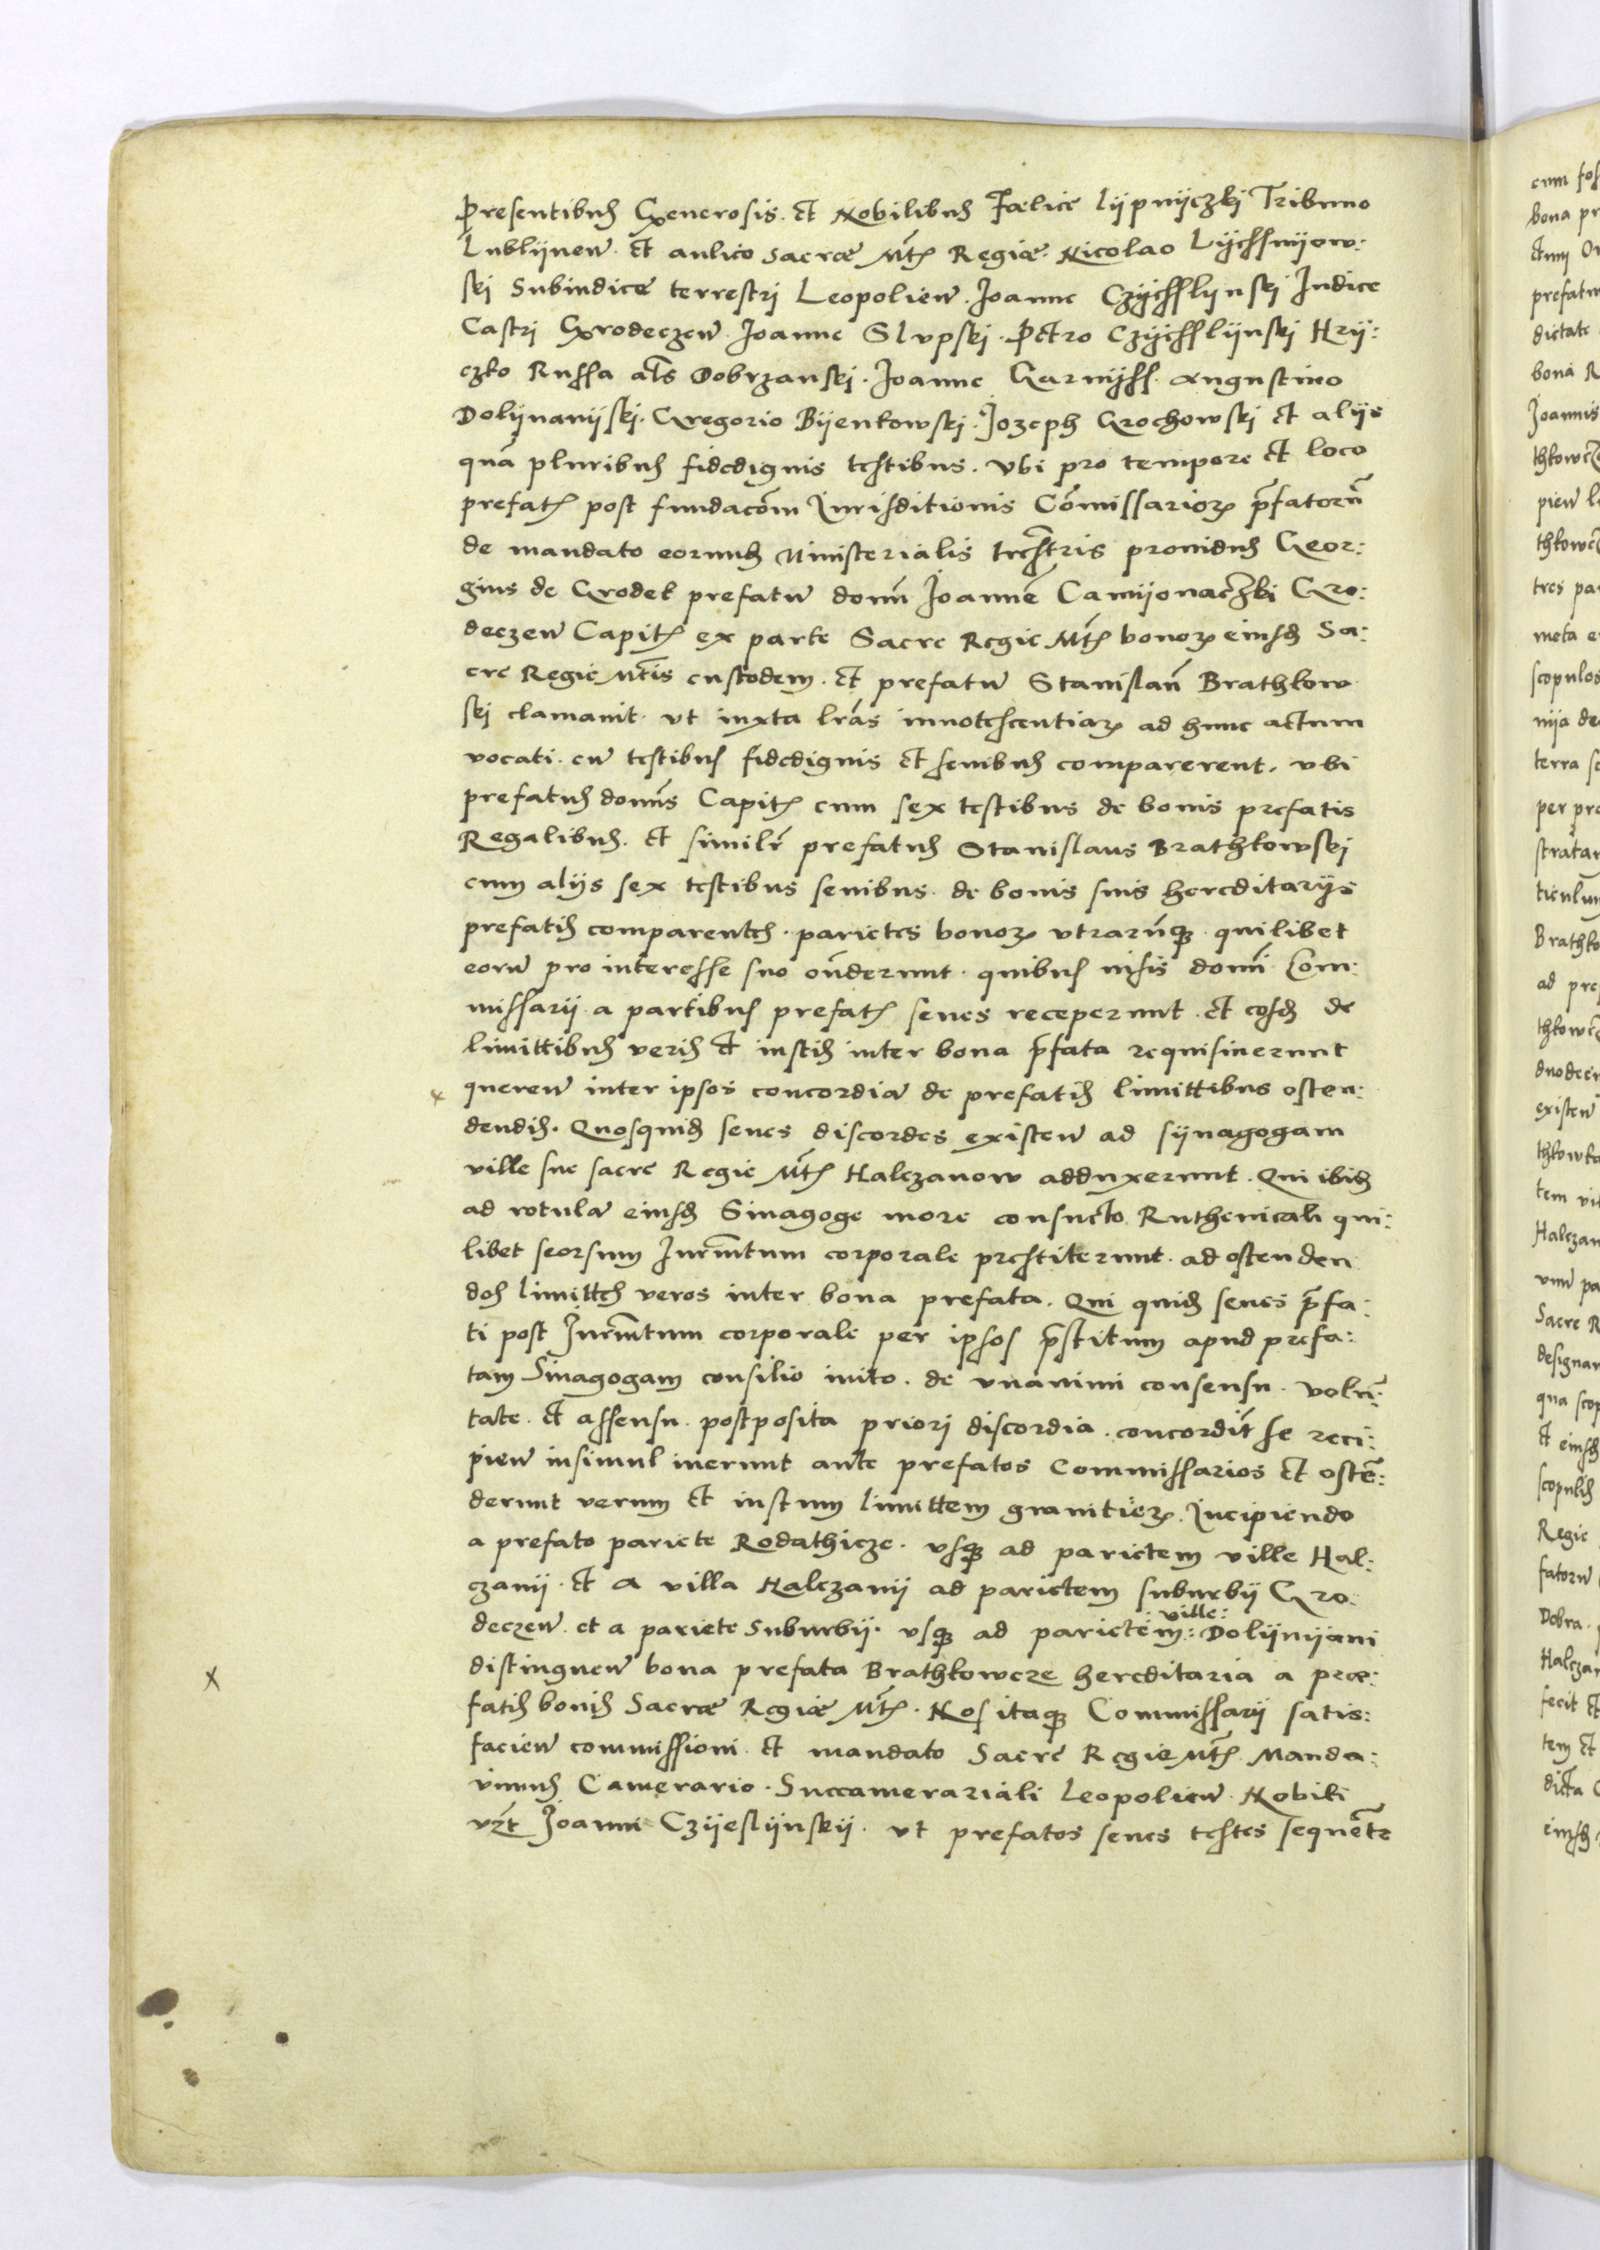 Presentibus Generosis. et Nobilibus Fælice Lypnyczki Tribuno
Lublynen. et aulico Sacræ Mtis Regiæ. Nicolao Lychssnyow:
ski Subiudice terrestri Leopolien. Joanne Czychsslynski Judice
Castri Grodeczen. Joanne Slupski. Petro Czychsslynski Hry:
czko Russa als Dobrzanski. Joanne Garnyss. Augustino
Dolynanyski. Gregorio Byenkowski. Jozeph Grochowski et alys
quã pluribus fidedignis testibus. vbi pro tempore et loco
prefatis post fundacõem Jurisditionis Cõmissariorum prefatorũ
de mandato eorundem Ministerialis terrestris prouidus Geor:
gius de Grodek prefatum domũ Joannẽ Camyonaczki Gro:
deczen Capitem ex parte Sacre Regie Mtis bonorum eiusdem Sa:
cre Regie Mtis custodem. et prefatum Stanislaũ Brathkow
ski clamauit. vt iuxta lrãs innotescentiarum ad hunc actum
vocati. cum testibus fidedignis et senibus comparerent. vbi
prefatus domũs Capites cum sex testibus de bonis prefatis
Regalibus. et similr prefatus Stanislaus Brathkowski
cum alys sex testibus senibus. de bonis suis hereditarys
prefatis comparentes. parietes bonorum vtrarũque quilibet
eorum pro interesse suo oñderunt. quibus uisis domĩ Com:
missarii a partibus prefatis senes receperunt. et eosdem de
limittibus veris et iustis inter bona prefata requisiuerunt
querentes inter ipsos concordiam de prefatis limittibus osten:
dendis. Quosquidem senes discordes existen ad synagogam
ville sue sacre Regie Mtis Halczanow adduxerunt. Qui ibidem
ad rotulam eiusdem Sinagoge more consueto Ruthenicali qui:
libet seorsum Jurmtum corporale prestiterunt. ad ostenden
dos limittes veros inter bona prefata. Qui quidem senes prefa:
ti post Jurmtum corporale per ipsos prestitum apud prefa:
tam Sinagogam consilio inito. de vnanimi consensu. volũ:
tate. et assensu. postposita priori discordia. concordit se reci:
pien insimul iuerunt ante prefatos Commissarios et ostẽ:
derunt verum et iustum limittem granitierum. Incipiendo
a prefato pariete Rodathicze. vsque ad parietem ville Hal:
czany. et a villa Halczany ad parietem suburby Gro:
deczen. et a pariete Suburby. vsque ad parietem: ville: Dolynyani
distinguen bona prefata Brathkowcze hereditaria a præ:
fatis bonis Sacræ Regiæ Mtis. Nos itaque Commissary satis:
facien commissioni. et mandato Sacre Regie Mtis. Manda:
uimus Camerario. Succamerariali Leopolien. Nobili
vzt Joanni Czyeslynsky. vt prefatos senes testes sequẽtr